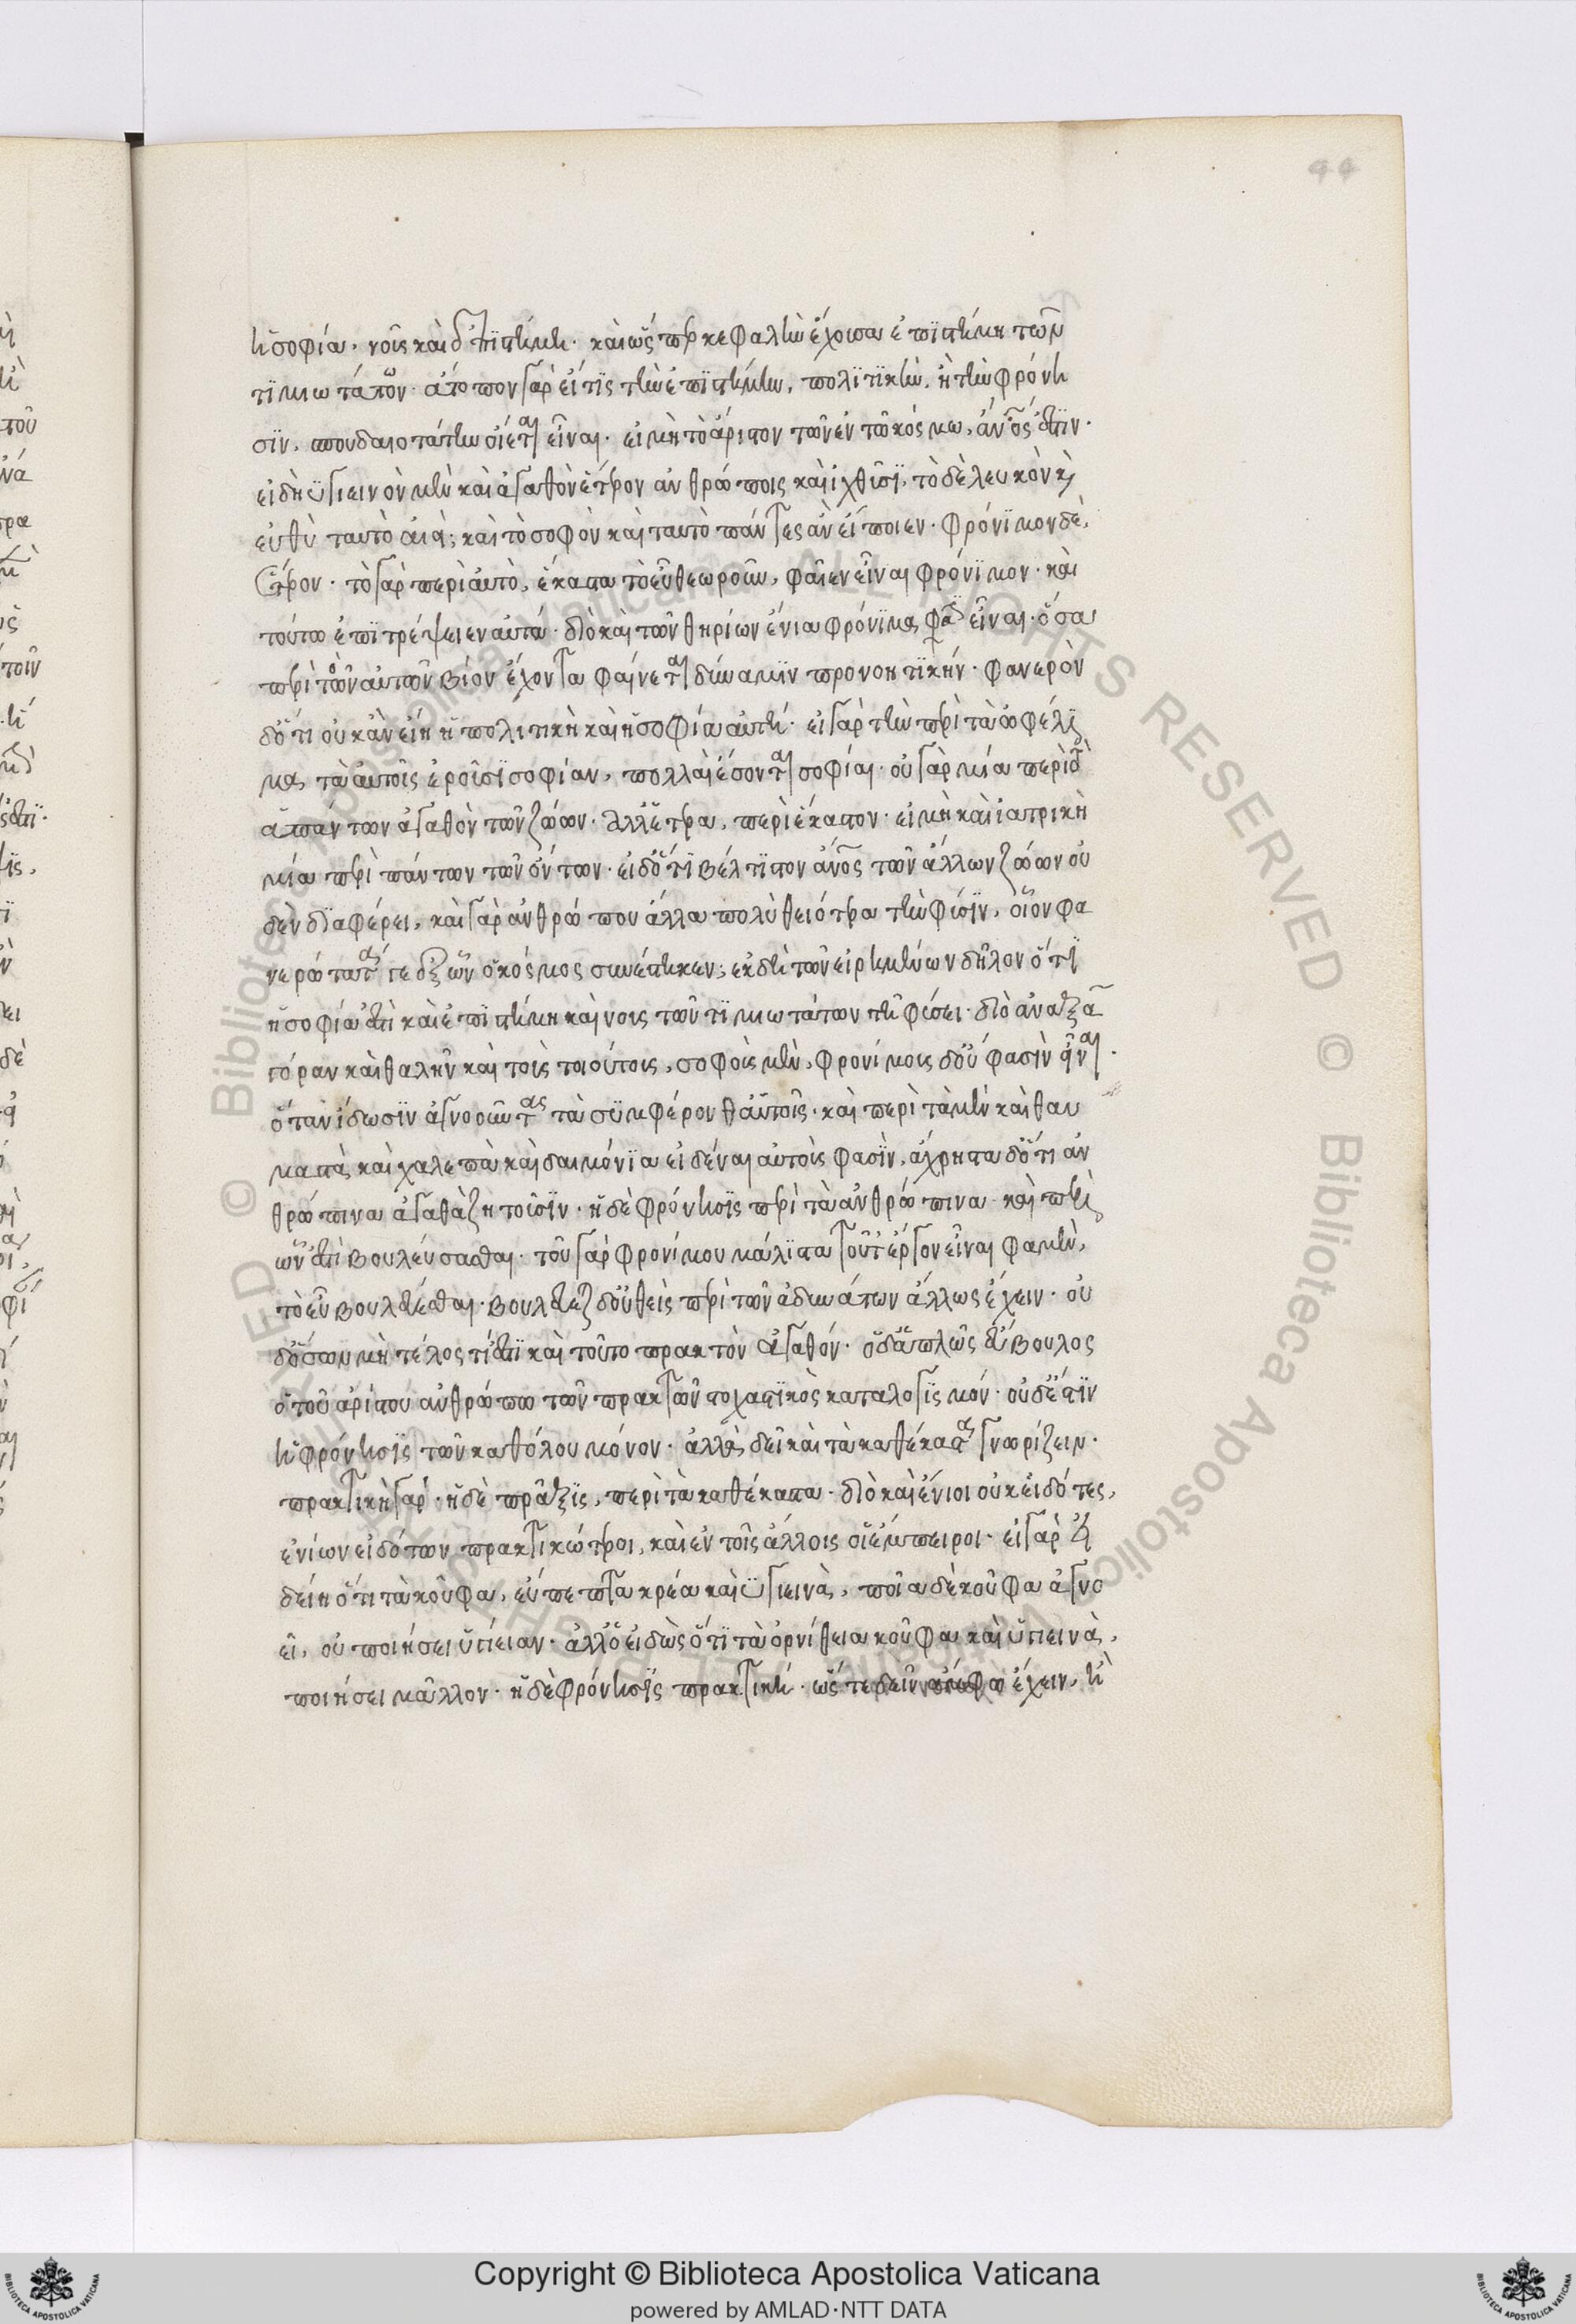 44
ἡ σοφία, νοῦς καὶ ἐπιστήμη. καὶ ὥσπερ κεφαλὴν ἔχουσα ἐπιστήμη τῶν
τιμιωτάτων. ἄτοπον γὰρ εἴ τις τὴν ἐπιστήμην, πολιτικὴν, ἢ τὴν φρόνη
σιν, σπουδαιοτάτην οἴεται εἶναι. εἰ μὴ τὸ ἄριστον τῶν ἐν τῷ κόσμω, ἄνος ἐστιν.
εἰ δὴ ὑγιεινὸν μὲν καὶ ἀγαθὸν ἕτερον ἀνθρώποις καὶ ἰχθύσι, τὸ δὲ λευκὸν κ
εὐθὺ ταυτὸ ἀεὶ; καὶ τὸ σοφὸν καὶ ταυτὸ πάντες ἂν εἴποιεν. φρόνιμον δὲ,
ἕτερον. τὸ γὰρ περὶ αὐτὸ, ἕκαστα τὸ εὖ θεωροῦν, φαῖεν εἶναι φρόνιμον. καὶ
τούτω ἐπιτρέψειεν αὐτά. διὸ καὶ τῶν θηρίων ἔνια φρόνιμα φασ εἶναι. ὅσα
περὶ τὸν αὐτῶν βίον ἔχοντα φαίνεται δύναμιν προνοητικήν. φανερὸν
δ ὅτι οὐκ ἂν εἴη ἡ πολιτικὴ καὶ ἡ σοφία αὐτή. εἰ γὰρ τὴν περὶ τὰ ὠφέλι
μα, τὰ αὐτοῖς ἐροῦσι σοφίαν, πολλαὶ ἔσονται σοφίαι. οὐ γὰρ μία περὶ τὸ
ἁπάντων ἀγαθὸν τῶν ζώων. ἀλλ ἑτέρα, περὶ ἕκαστον. εἰ μὴ καὶ ἰατρικὴ
μία περὶ πάντων τῶν ὄντων. εἰ δ ὅτι βέλτιστον ἄνος τῶν ἄλλων ζώων οὐ
δὲν διαφέρει, καὶ γὰρ ἀνθρώπου ἄλλα πολὺ θειότερα τὴν φύσιν, οἷον φα
νερώτατά γε ἐξ ὧν ὁ κόσμος συνέστηκεν; ἐκ δὴ τῶν εἰρημένων δῆλον ὅτι
ἡ σοφία ἐστὶ καὶ ἐπιστήμη καὶ νοῦς τῶν τιμιωτάτων τῇ φύσει. διὸ ἀναξα
γόραν καὶ θαλῆν καὶ τοὺς τοιούτους, σοφοὺς μὲν, φρονίμους δ οὔ φασὶν εἶναι.
ὅταν ἴδωσιν ἀγνοοῦντας τὰ συμφέρονθ αὑτοῖς. καὶ περὶ τὰ μὲν καὶ θαυ
μαστὰ καὶ χαλεπὰ καὶ δαιμόνια εἰδέναι αὐτοὺς φασὶν, ἄχρηστα δ ὅτι ἀν
θρώπινα ἀγαθὰ ζητοῦσιν. ἡ δὲ φρόνησις περὶ τὰ ἀνθρώπινα καὶ περὶ
ὧν ἐστὶ βουλεύσασθαι. τοῦ γὰρ φρονίμου μάλιστα τοῦτ ἔργον εἶναι φαμὲν,
τὸ εὖ βουλεύεσθαι. βουλεύεται δ οὐθεὶς περὶ τῶν ἀδυνάτων ἄλλως ἔχειν. οὐ
δ ὅσων μὴ τέλος τί ἐστι καὶ τοῦτο πρακτὸν ἀγαθόν. ὁ δ ἁπλῶς εὔβουλος
ὁ τοῦ ἀρίστου ἀνθρώπω τῶν πρακτῶν στοχαστικὸς κατα λογισμόν. οὐδ ἔστιν
ἡ φρόνησις τῶν καθόλου μόνον. ἀλλὰ δεῖ καὶ τὰ καθέκαστα γνωρίζειν.
πρακτικὴ γάρ. ἡ δὲ πρᾶξις, περὶ τὰ καθέκαστα. διὸ καὶ ἔνιοι οὐκ εἰδότες,
ἐνίων εἰδότων πρακτικώτεροι, καὶ ἐν τοῖς ἄλλοις οἱ ἔμπειροι. εἰ γὰρ εἰ
δείη ὅτι τὰ κοῦφα, εὔπεπτα κρέα καὶ ὑγιεινὰ, ποῖα δὲ κοῦφα ἀγνο
εῖ, οὐ ποιήσει ὑγίειαν. ἀλλ ὁ εἰδὼς ὅτι τὰ ὀρνίθεια κοῦφα καὶ ὑγιεινὰ,
ποιήσει μᾶλλον. ἡ δὲ φρόνησις πρακτική. ὥστε δεῖν ἄμφω ἔχειν, ἢ